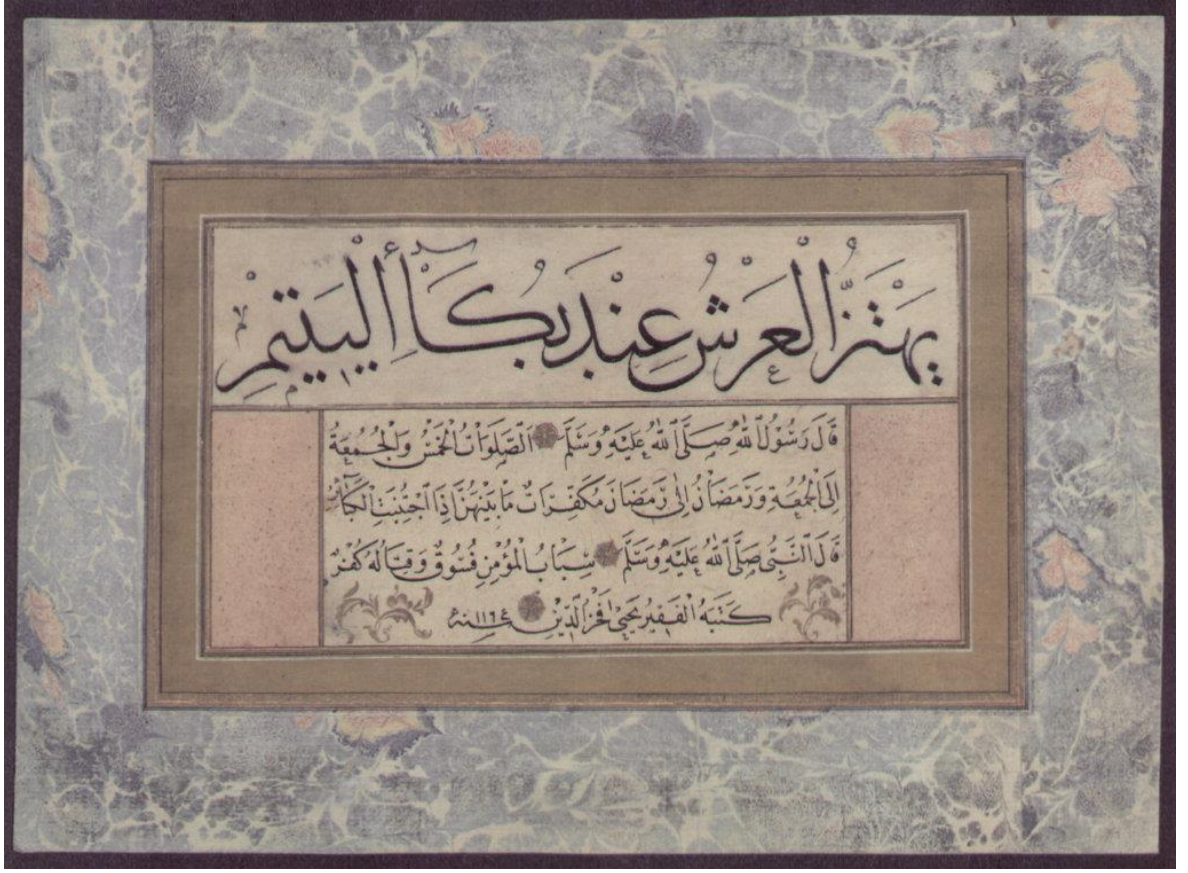 يَهْتَزُّ الْعَرْشُ عِنْدَ بُكَأِ الْيَتِيمْ
قَالَ رَسُولُ اللّٰهِ صَلَّى اللّٰهُ عَلَيْهِ وَسَلَّمَ الصَّلَوَاتُ الْخَمْسُ وَالْجُمُعَةُ
اِلَى الْجُمُعَةِ وَرَمَضَانُ اِلٰى رَمَضَانَ مُكَفِّرَاتٌ مَا بَيْنَهُنَّ اِذَا اجْتُنِبَتِ الْكَبَآئِرُ
قَالَ النَّبِىُّ صَلَّى اللّٰهُ عَلَيْهِ وَسَلَّمَ سِبَابُ الْمُؤْمِنِ فُسُوقٌ وَقِتَالُهُ كُفْرٌ
كَتَبَهُ الْفَقِيرُ يَحْيٰى فَخْرُ الدِّينِ سنه ١١٦٤